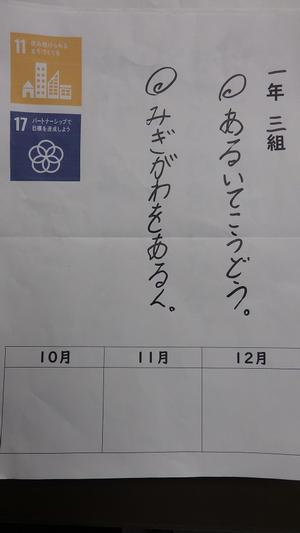 一年 三組
あるいてこうどう。
みぎがわをあるく。
11 住み続けられる
まちづくりを
17 パートナーシップで
目標を達成しよう
10月 11月 12月